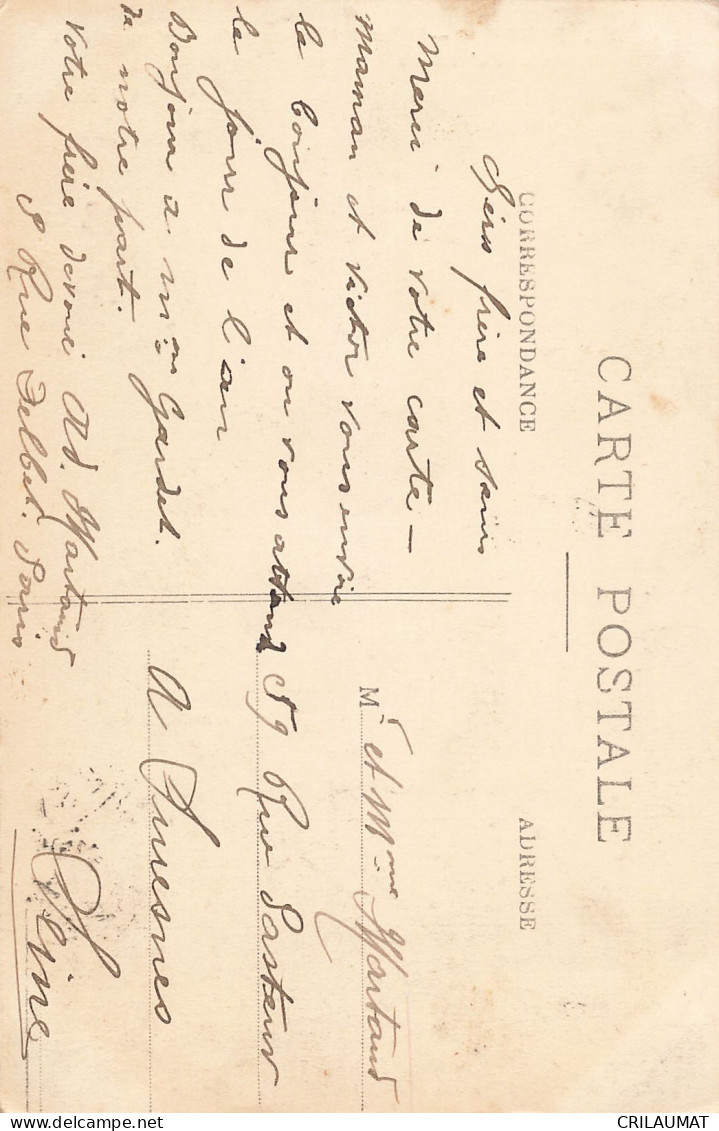 CARTE POSTALE
CORRESPONDANCE
ADRESSE
frère et
Merci de votre carte —
Maman et Victor vous envoie
le bonjour et on vous attend
le jour de l'an
Bonjour a Mme Gardet.
de notre part.
Votre frère devoué Ad. Martaud
8 Rue Delbet. Paris
Mr et Mme Martaud
89 Rue Pasteur
A Suresnes
Seine
CRILAUMAT